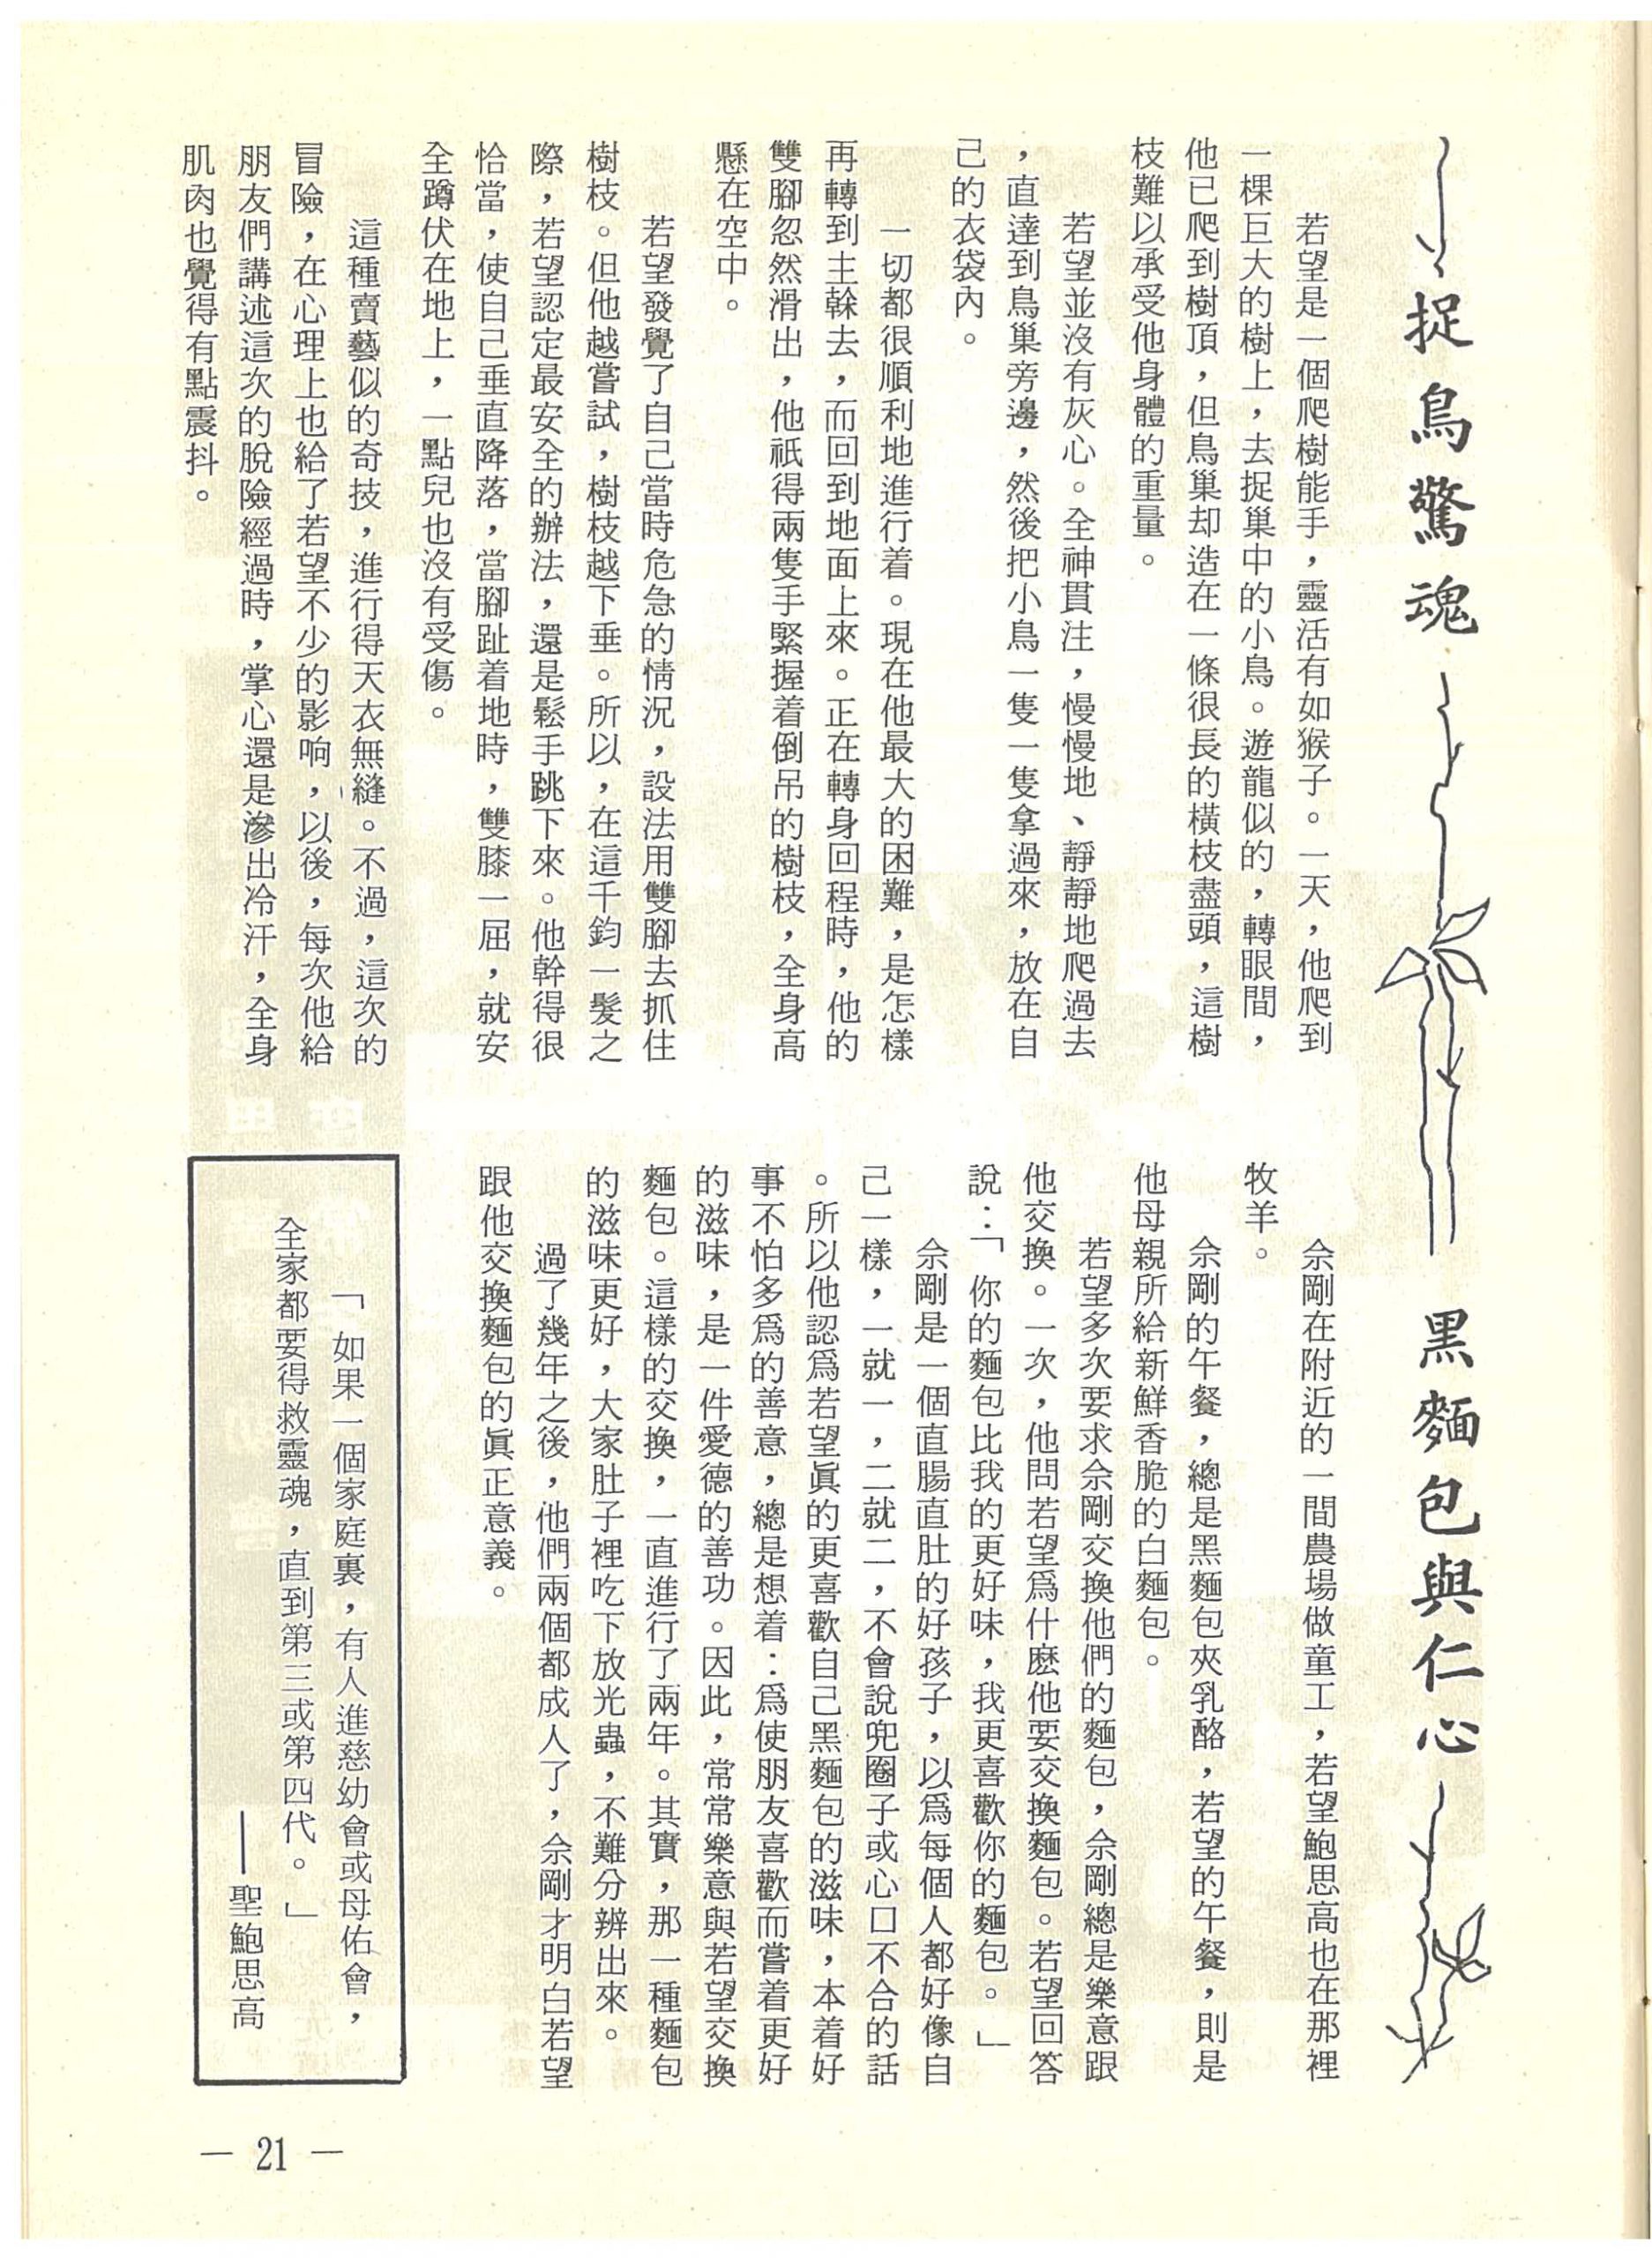 捉鳥驚魂
若望是一個爬樹能手，靈活有如猴子。一天，他爬到
一棵巨大的樹上，去捉巢中的小鳥。遊龍似的，轉眼間，
他已爬到樹頂，但鳥巢却造在一條很長的橫枝盡頭，這樹
枝難以承受他身體的重量。
若望並沒有灰心。全神貫注，慢慢地、靜靜地爬過去
，直達到鳥巢旁邊，然後把小鳥一隻一隻拿過來，放在自
己的衣袋內。
一切都很順利地進行着。現在他最大的困難，是怎樣
再轉到主榦去，而回到地面上來。正在轉身回程時，他的
雙腳忽然滑出，他祇得兩隻手緊握着倒吊的樹枝，全身高
懸在空中。
若望發覺了自己當時危急的情況，設法用雙腳去抓住
樹枝。但他越嘗試，樹枝越下垂。所以，在這千鈞一髮之
際，若望認定最安全的辦法，還是鬆手跳下來。他幹得很
恰當，使自己垂直降落，當腳趾着地時，雙膝一屈，就安
全蹲伏在地上，一點兒也沒有受傷。
這種賣藝似的奇技，進行得天衣無縫。不過，這次的
冒險，在心理上也給了若望不少的影响，以後，每次他給
朋友們講述這次的脫險經過時，掌心還是滲出冷汗，全身
肌肉也覺得有點震抖。
黑麵包與仁心
佘剛在附近的一間農場做童工，若望鮑思高也在那裡
牧羊。
佘剛的午餐，總是黑麵包夾乳酪，若望的午餐，則是
他母親所給新鮮香脆的白麵包。
若望多次要求佘剛交換他們的麵包，佘剛總是樂意跟
他交換。一次，他問若望爲什麽他要交換麵包。若望回答
說：「你的麵包比我的更好味，我更喜歡你的麵包。」
佘剛是一個直腸直肚的好孩子，以爲每個人都好像自
己一樣，一就一，二就二，不會說兜圈子或心口不合的話
。所以他認爲若望眞的更喜歡自己黑麵包的滋味，本着好
事不怕多爲的善意，總是想着：爲使朋友喜歡而嘗着更好
的滋味，是一件愛德的善功。因此，常常樂意與若望交換
麵包。這樣的交換，一直進行了兩年。其實，那一種麵包
的滋味更好，大家肚子裡吃下放光蟲，不難分辨出來。
過了幾年之後，他們兩個都成人了，佘剛才明白若望
跟他交換麵包的眞正意義。
「如果一個家庭裏，有人進慈幼會或母佑會，
全家都要得救靈魂，直到第三或第四代。」
——聖鮑思高
— 21 —